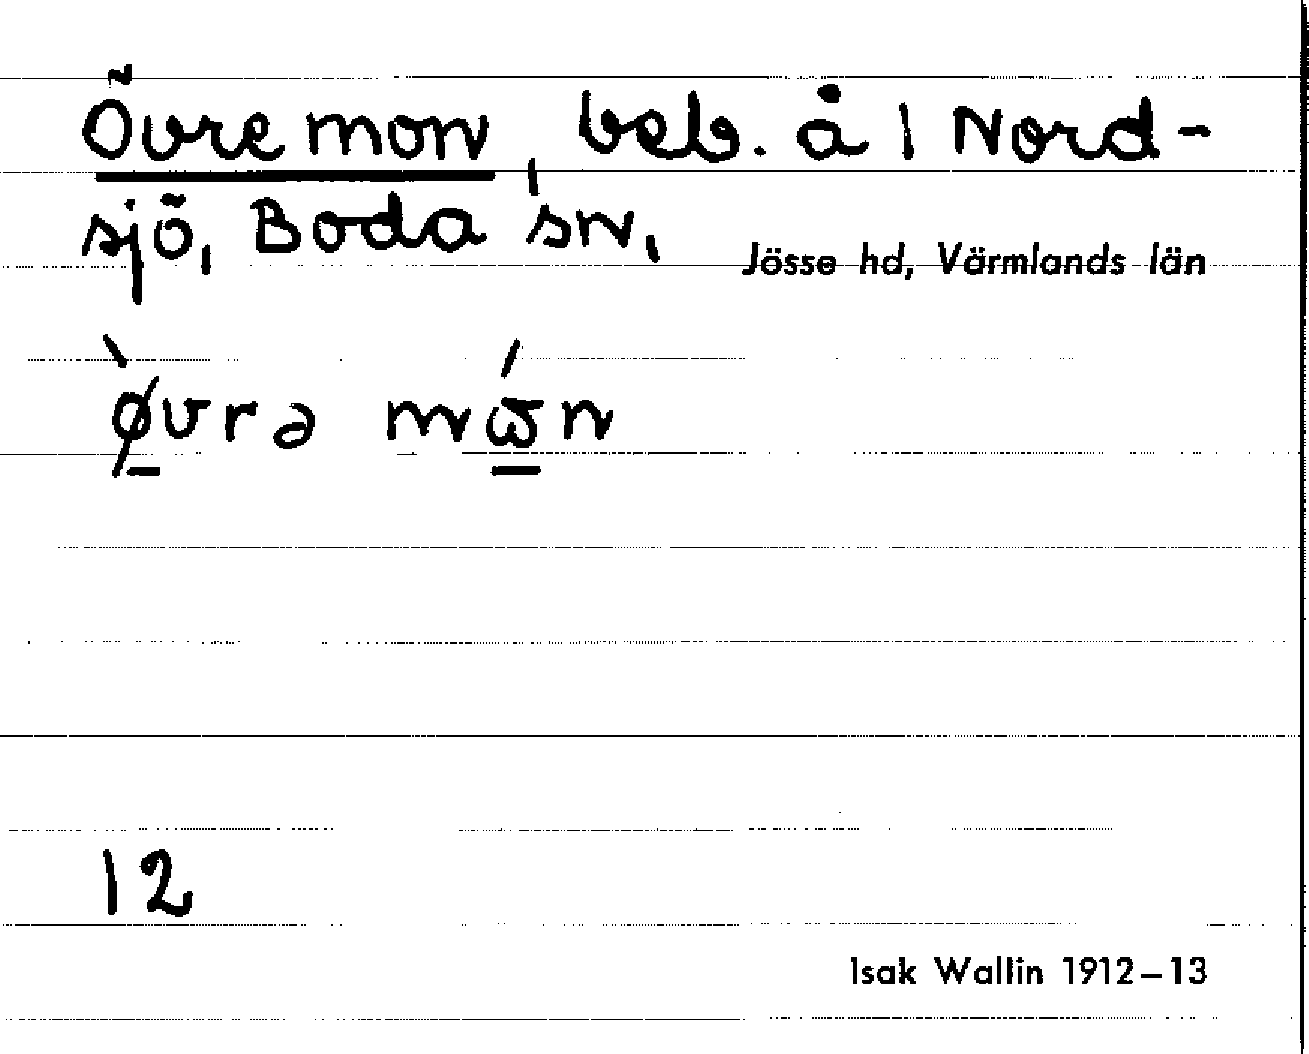 Övre mon, beb. å 1 Nord-
sjö, Boda sn,
Jösse hd, Värmlands län
ø̀vrə mɷ́n
12
Isak Wallin 1912–13